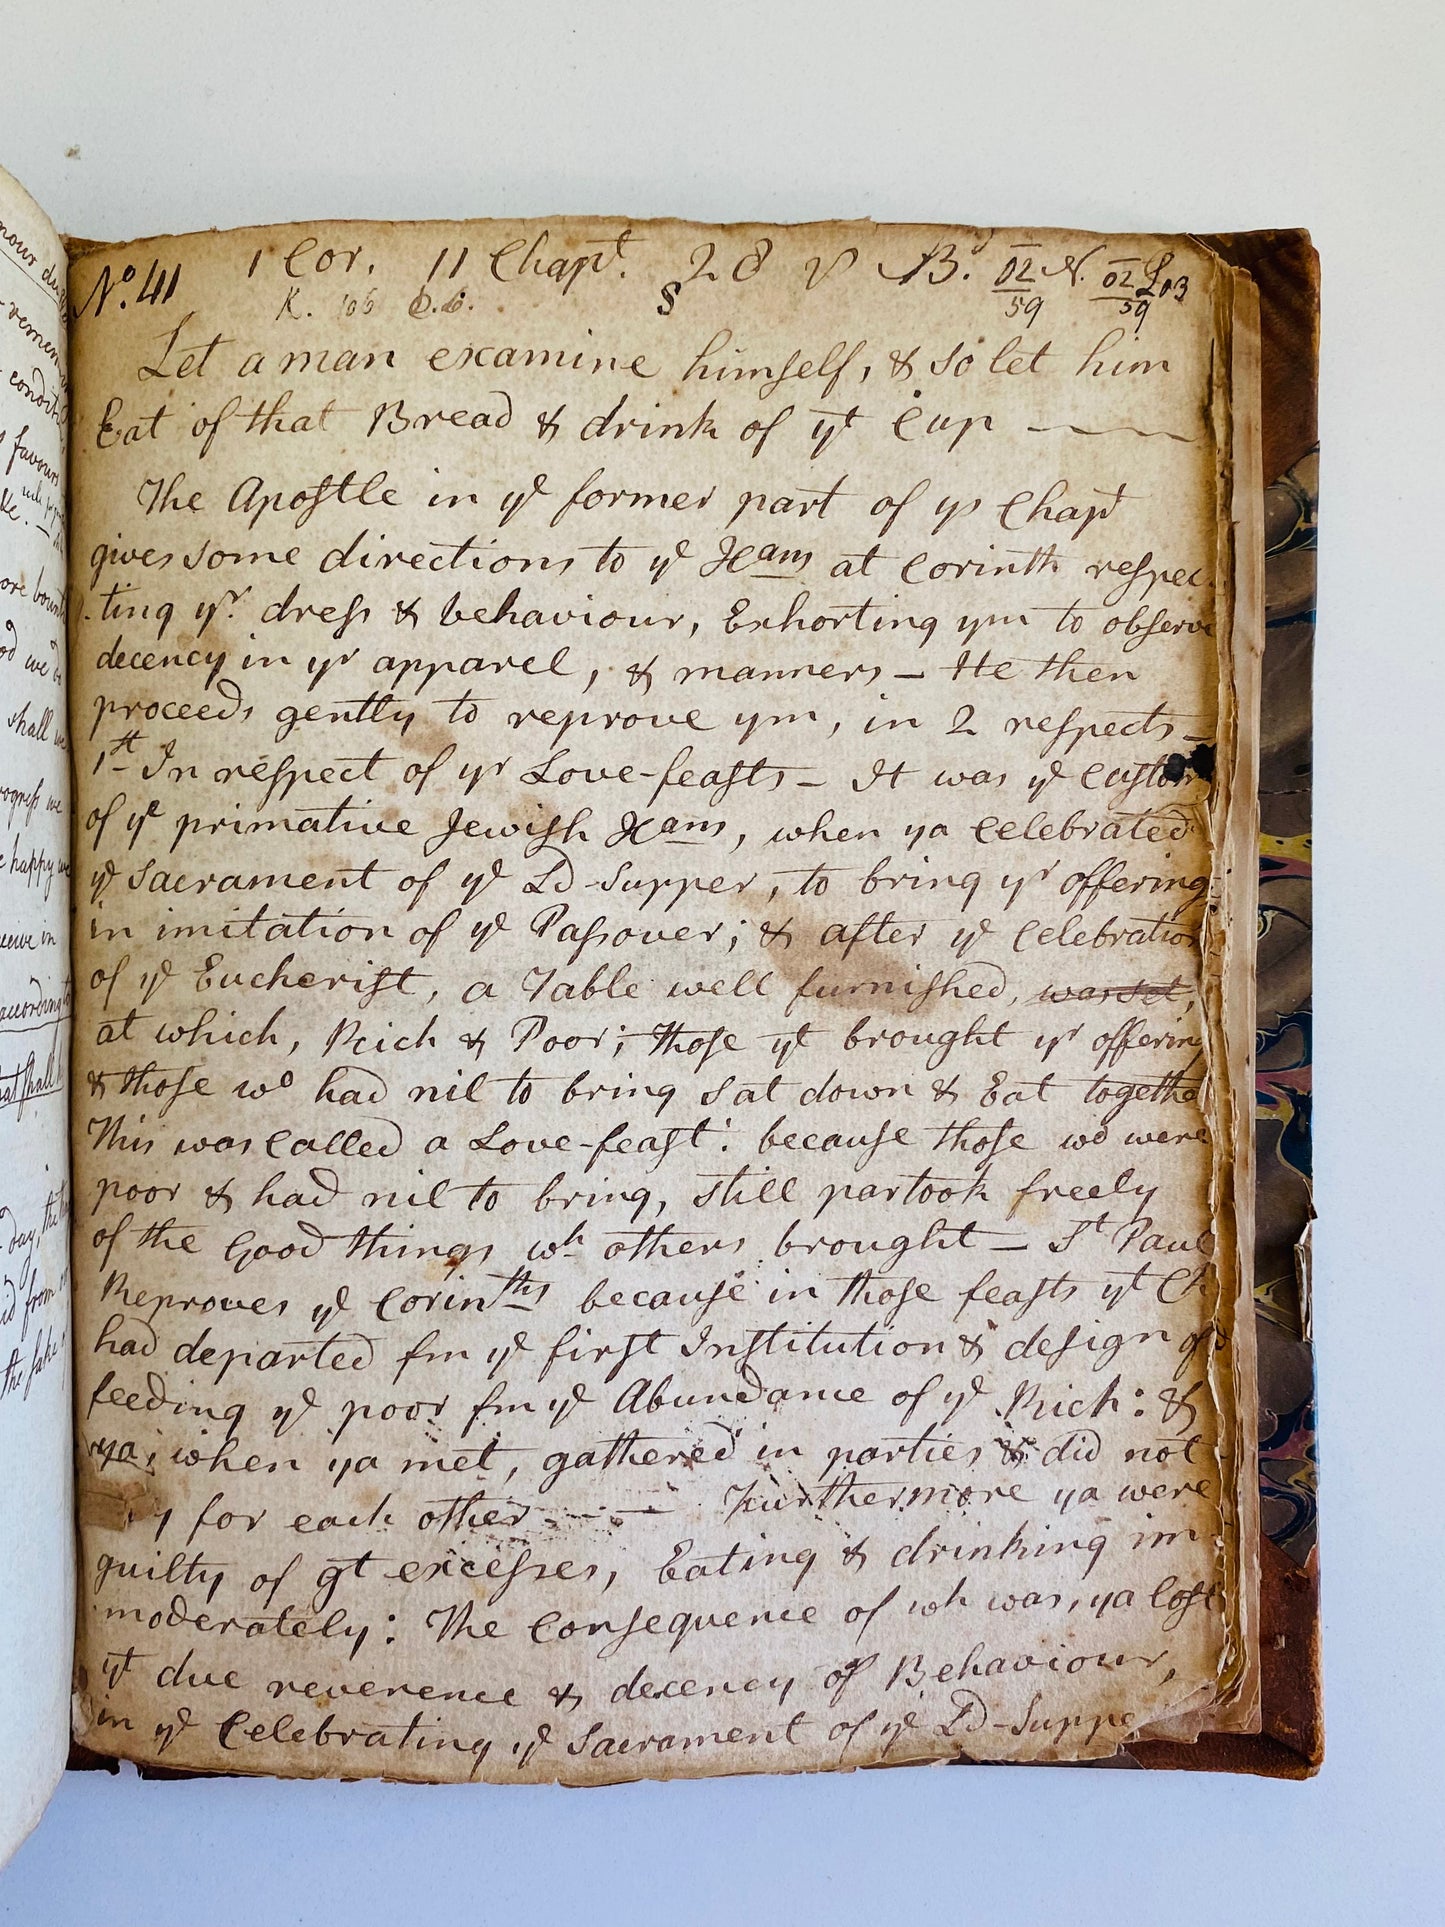 mour du
remem
condit
favours
ore bount
od we b
shall we
rogress we
happy we
ceive in
according to
day, the
id from
the sake
No. 41 1 Cor. 11 Chapt. 28 v B.d 02/59 N. 02/59 L03
K. 106 C.C. S
Let a man examine himself, & so let him
Eat of that Bread & drink of yt Cup
The Apostle in ye former part of ys Chapt
gives some directions to ye Xans at Corinth respec-
ting yr. dress & behaviour, Exhorting ym to observe
decency in yr apparel, & manners – He then
proceeds gently to reprove ym, in 2 respects –
1st In respect of yr Love-feasts – It was ye Custom
of ye primative Jewish Xans, when ya Celebrated
ye Sacrament of ye Ld-Supper, to bring yr offering
in imitation of ye Passover; & after ye Celebration
of ye Eucherist, a Table well furnished, was set,
at which, Rich & Poor; those yt brought yr offering
& those wo had nil to bring sat down & Eat togethe
This was Called a Love-feast: because those wo were
poor & had nil to bring, still partook freely
of the Good things wh others brought – St Paul
Reproves ye Corinths because in those feasts yt Ch
had departed fm ye first Institution & design of
feeding ye poor fm ye Abundance of ye Rich: &
ya, when ya met, gathered in parties & did not
y for each other – – Furthermore ya were
guilty of gt excesses, Eating & drinking im-
moderately: The Consequence of wh was, ya lost
yt due reverence & decency of Behaviour,
in ye Celebrating ye Sacrament of ye Ld-Suppe